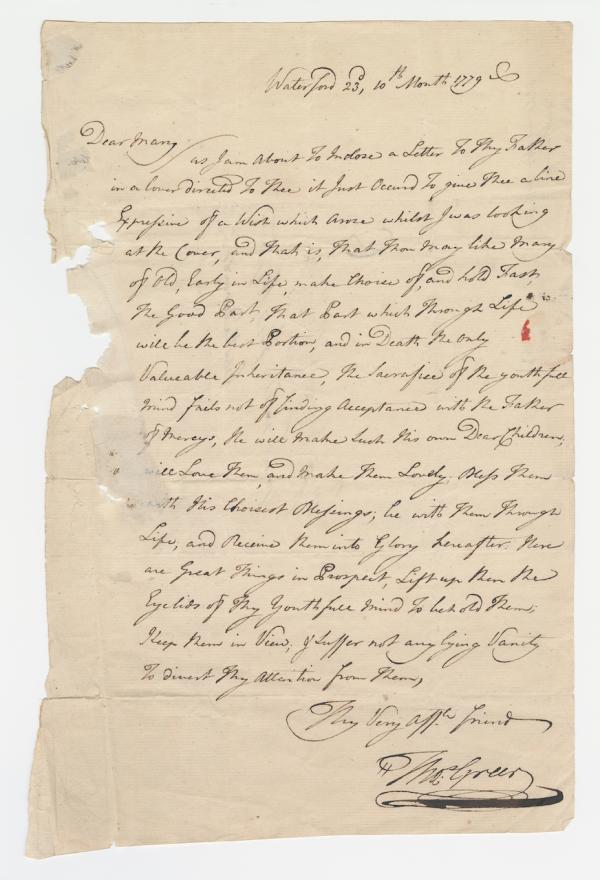 Waterford 23d, 10th Month 1779
Dear Mary
as I am About To Inclose a Letter To Thy Father
in a Cover directed To Thee it Just Occurd To give Thee a line
Expressive of a Wish which Arose whilst I was looking
at the Cover, and That is, That Thou May like Mary
of Old, Early in Life, make Choice of, and hold Fast,
the Good Part, That Part which Through Life
will be the best Portion, and in Death the Only
Valueable Inheritance, The Sacrafice of the youthfull
mind fails not of finding Acceptance with the Father
of Mercys, He will make Such His own Dear Children,
will Love Them, and Make Them Lovely. Bless Them
with His Choisest Blessings; be with Them Through
Life, and Receive them into Glory hereafter. Here
are Great Things in Prospect, Lift up then the
Eyelids of Thy Youthfull Mind To behold Them;
Keep them in View; & Suffer not any lying Vanity
To divert Thy Attention from Them,
Thy Very Afft. friend
Thos. Greer